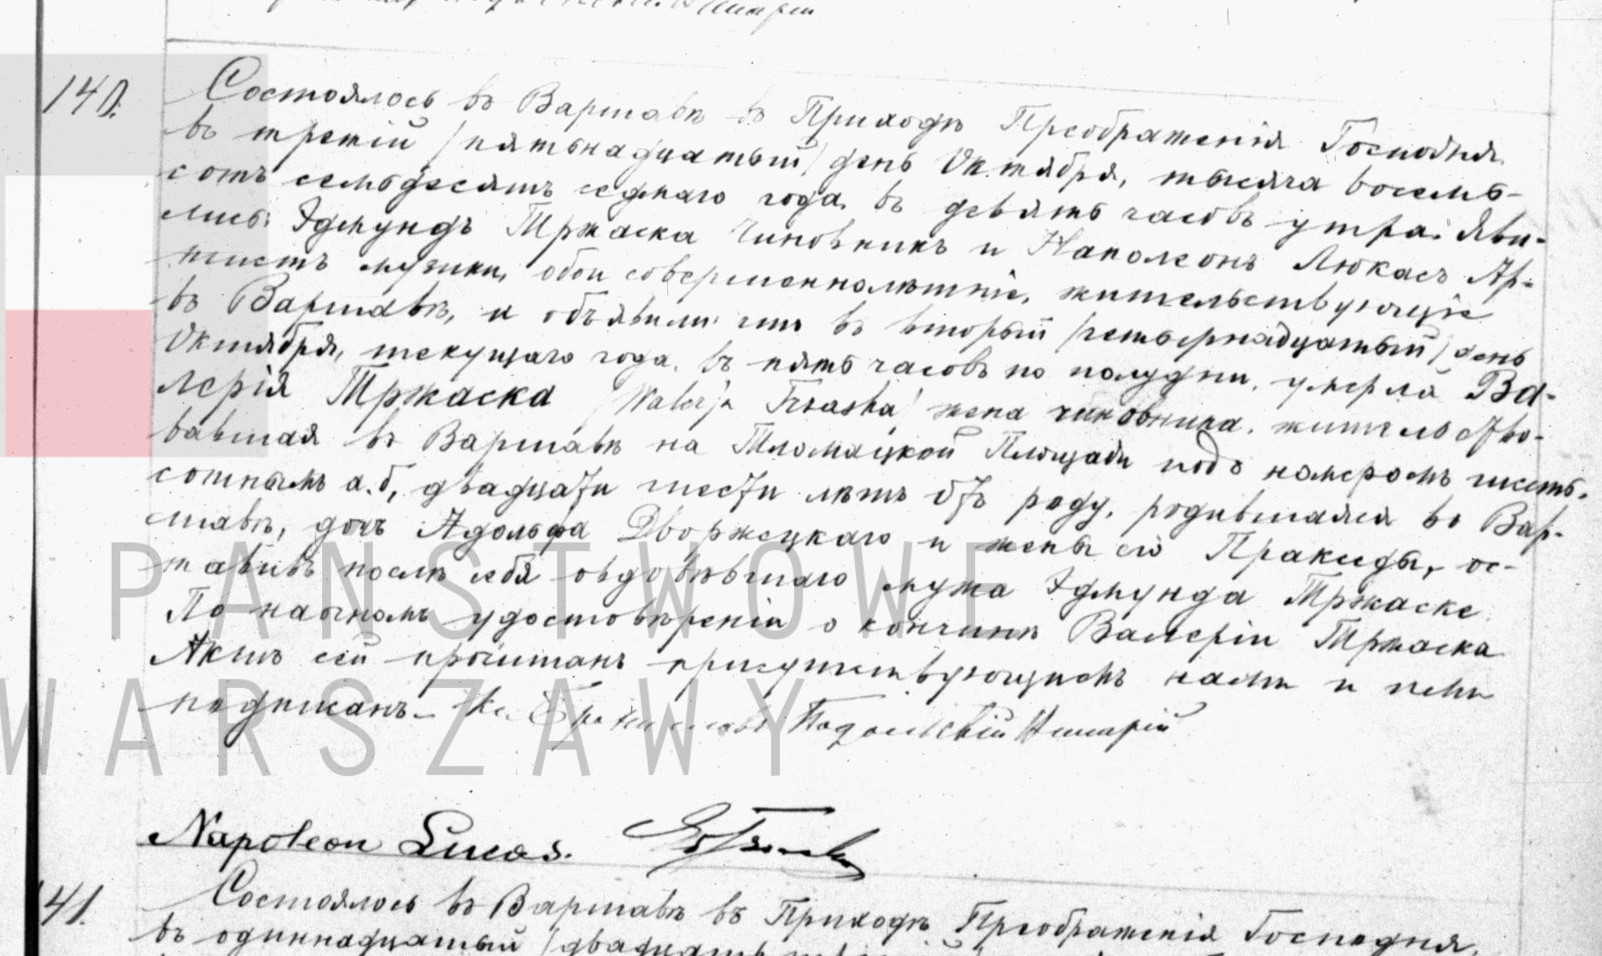 140.
Состоялось въ Варшавѣ въ Приходѣ Преображенія Господня
въ третій /пятьнадцатый/ день Октября, тысяча восемь-
сотъ семьдесятъ седмаго года, въ девять часовъ утра. Яви-
лись: Эдмундъ Тржаска Чиновникъ и Наполеонъ Люкасъ Ар-
тистъ музыки, обои совершеннолѣтніе, жительствующіе
въ Варшавѣ, и объявили что въ вторый /четырнадцатый/ день
Октября, текущаго года, въ пять часовъ по полудни, умерла Ва-
лерія Тржаска /Walerja Trzaska/ жена чиновника, жительство-
вавшая въ Варшавѣ на Тломацкой Площади подъ номеромъ шесть-
сотнымъ а.б, двадцати шести лѣтъ отъ роду, родившаяся въ Вар-
шавѣ, дочь Адольфа Дворжецкаго и жены его Праксиды, ос-
тавивъ послѣ себя овдовѣвшаго мужа Эдмунда Тржаске.
По наочномъ удостовѣреніи о кончинѣ Валеріи Тржаска
Актъ сей прочитанъ присутствующимъ нами и ими
подписанъ. Кс. Брониславъ Подольскій
Napoleon Lucas.
141.
Состоялось въ Варшавѣ въ Приходѣ Преображенія Господня,
въ одиннадцатый /двадцать
PAŃSTWOWE
WARSZAWY